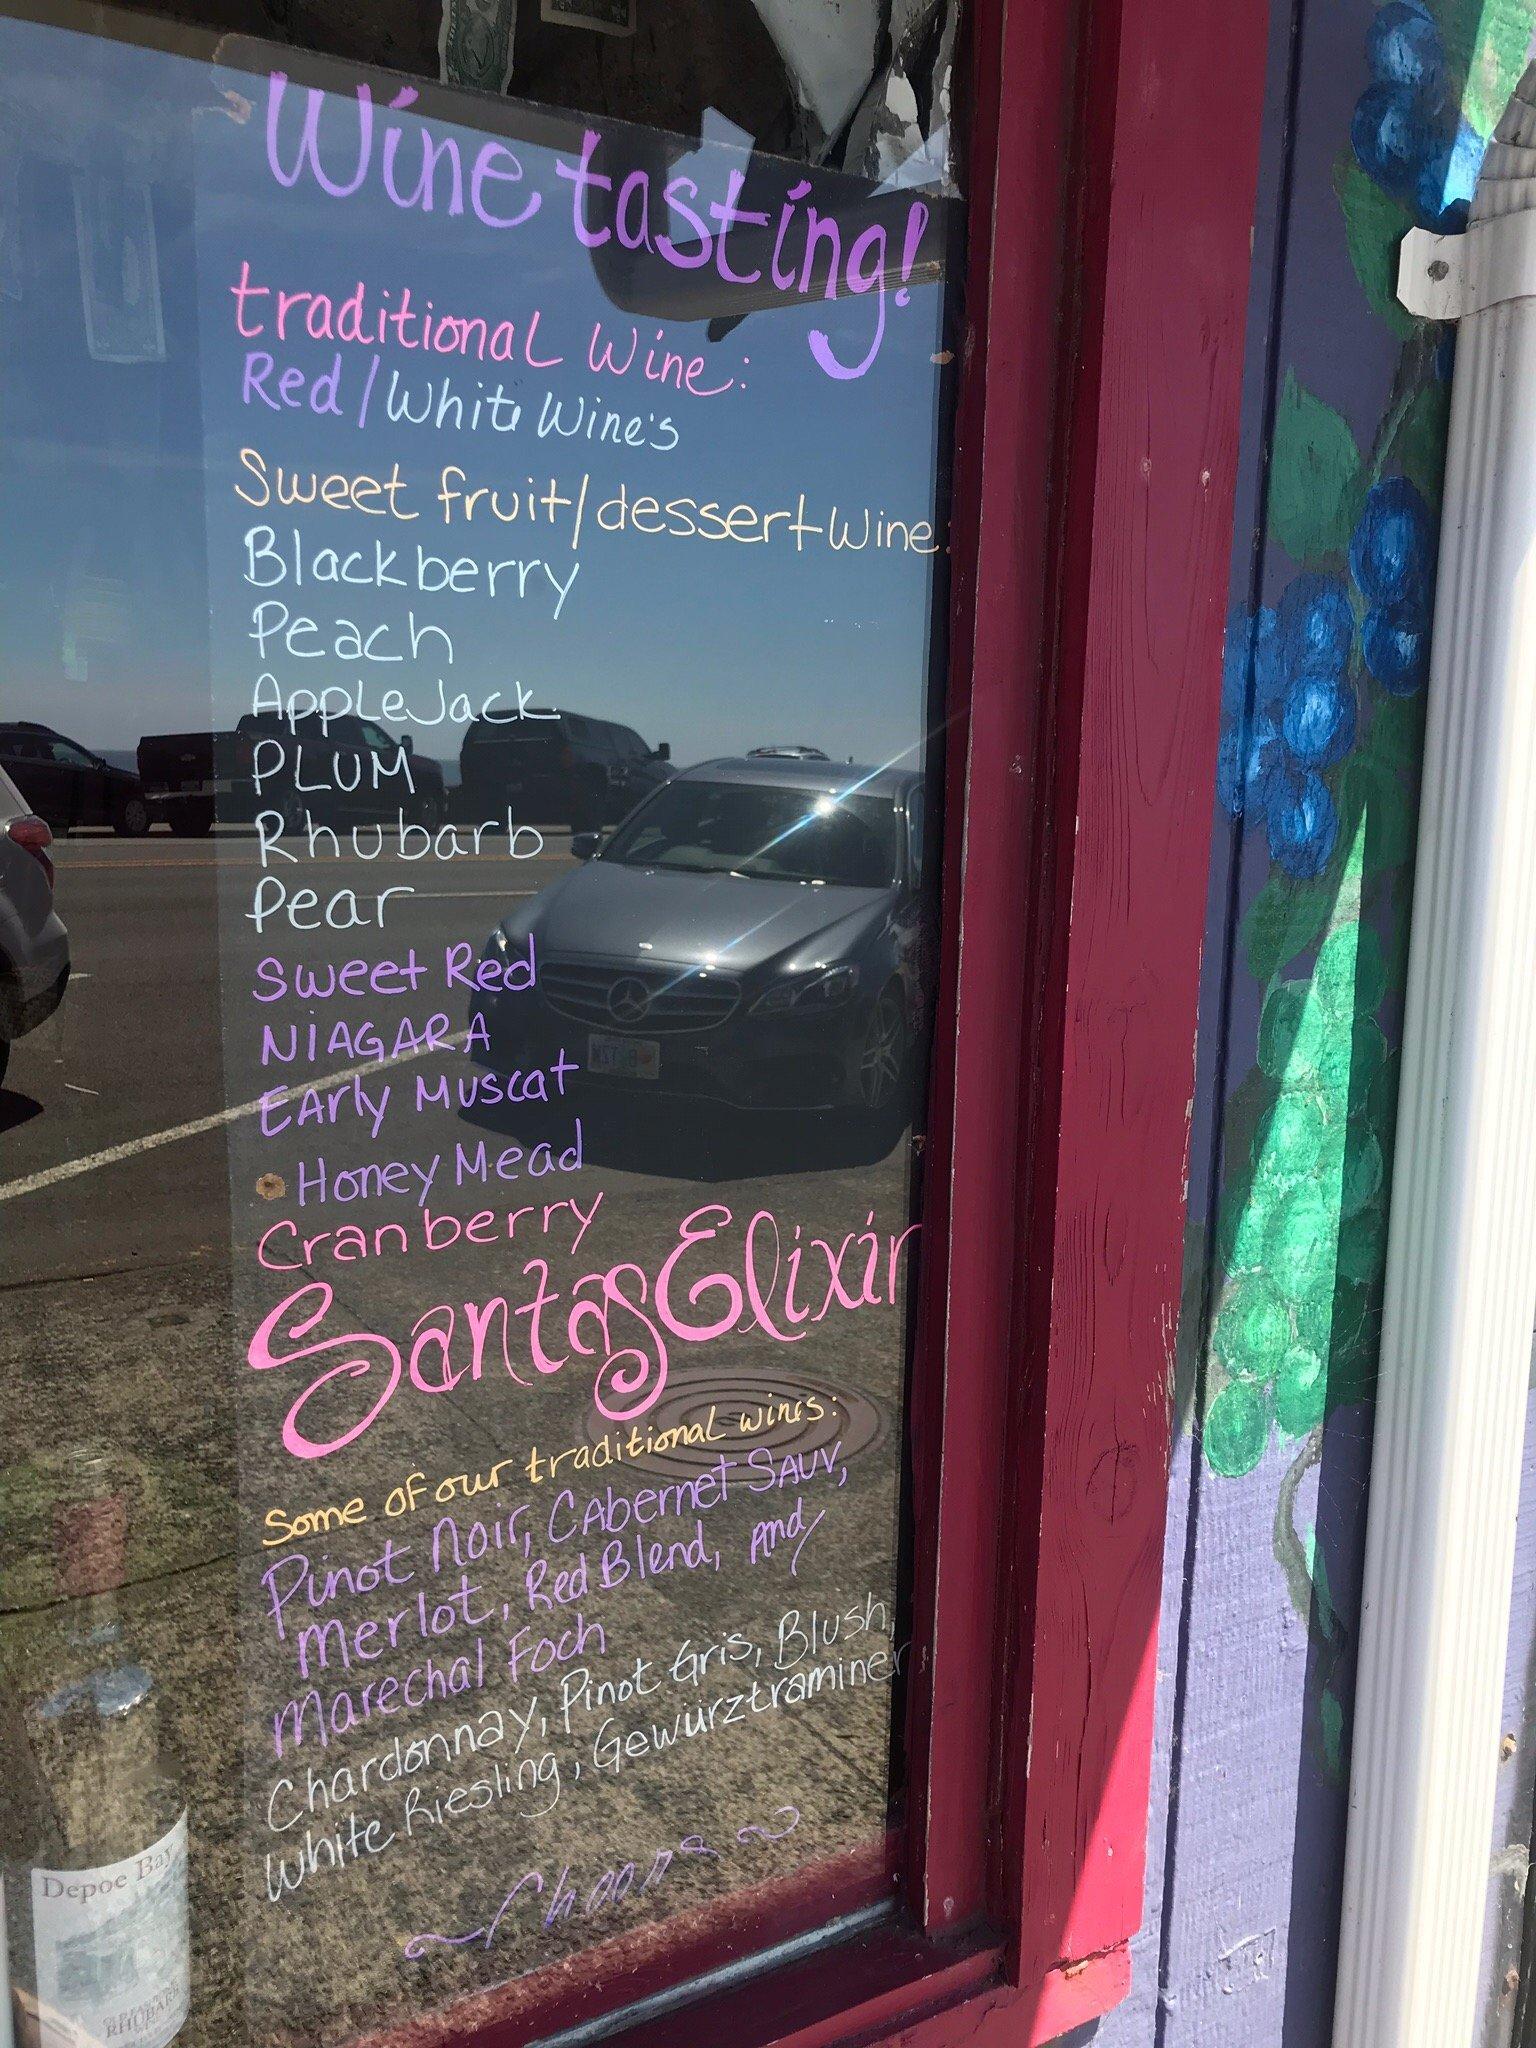 Wine tasting!
traditional Wine:
Red/White Wine's
Sweet fruit/dessert Wine:
Blackberry
Peach
AppleJack
PLUM
Rhubarb
Pear
Sweet Red
NIAGARA
EArly Muscat
Honey Mead
Cranberry
Santas Elixir
Some of our traditional wines:
Pinot Noir, CAbernet SAUV,
Merlot, Red Blend, And/
Marechal Foch
Chardonnay, Pinot Gris, Blush,
White Riesling, Gewürztraminer
Depoe Bay
RHUBARB